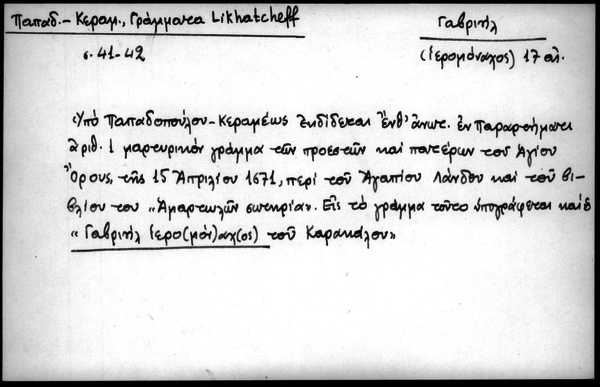 Παπαδ.-Κεραμ., Γράμματα Likhatcheff
Γαβριήλ
σ. 41-42
(ἱερομόναχος) 17 αἰ.
Ὑπό Παπαδοπούλου-Κεραμέως ἐκδίδεται ἔνθ' ἀνωτ. ἐν Παραρτήματι
ἀριθ. 1 μαρτυρικόν γράμμα τῶν προεστῶν καί πατέρων τοῦ Ἁγίου
Ὄρους, τῆς 15 Ἀπριλίου 1671, περί τοῦ Ἀγαπίου Λάνδου καί τοῦ βι-
βλίου του «Ἁμαρτωλῶν σωτηρία». Εἰς τό γράμμα τοῦτο ὑπογράφεται καί ὁ
«Γαβριήλ ἱερο(μόν)αχ(ος) τοῦ Καρακάλου»